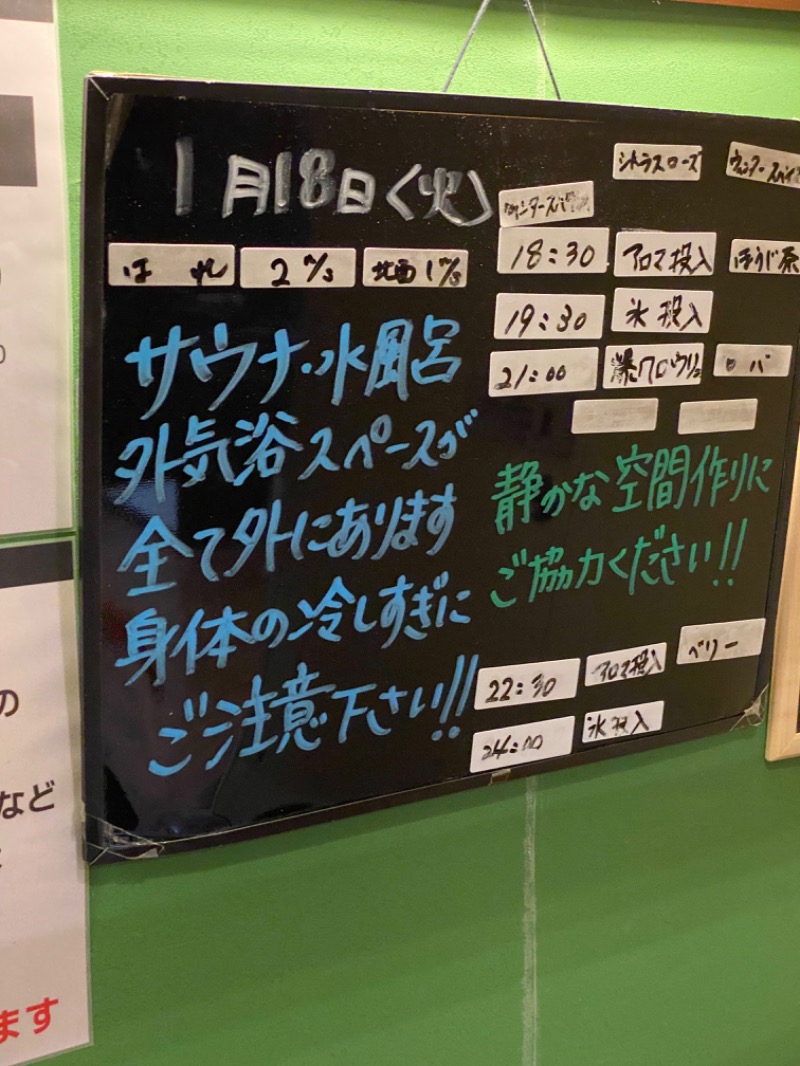 1月18日(火)
はれ 2㎧ 北西1㎧
サウナ・水風呂
外気浴スペースが
全て外にあります
身体の冷しすぎに
ご注意下さい!!
シトラスローズ
18:30 アロマ投入 ほうじ茶
19:30 氷投入
21:00 爆クロウリュ ロバ
静かな空間作りに
ご協力ください!!
22:30 アロマ投入 ベリー
24:00 氷投入
の
など
ます